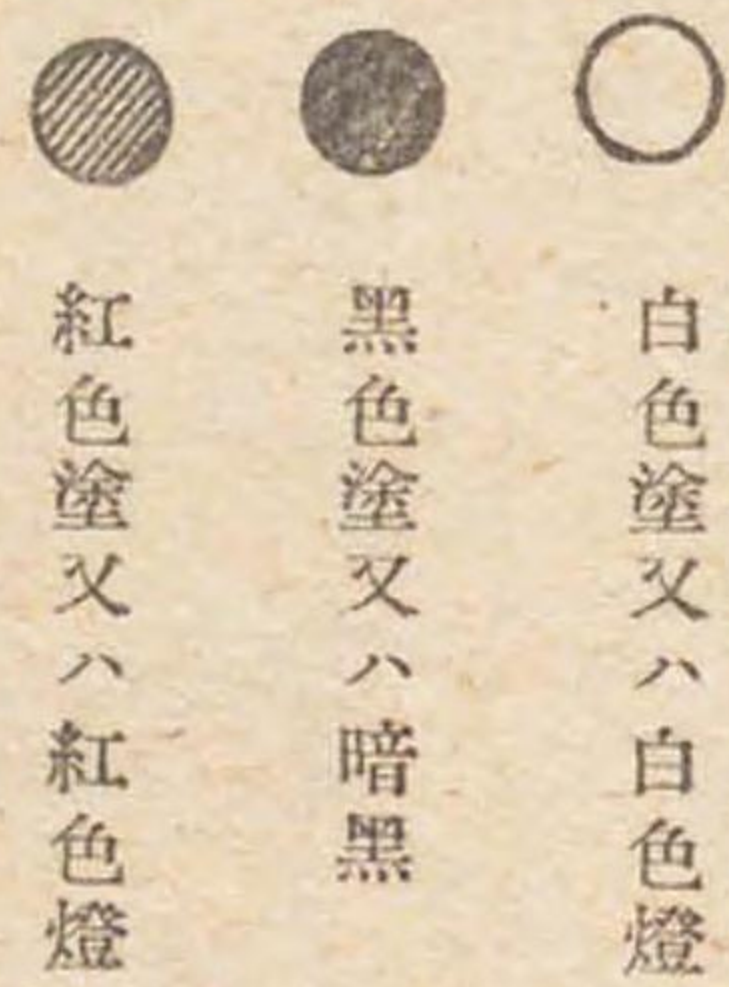 白色塗又ハ白色燈
黑色塗又ハ暗黑
紅色塗又ハ紅色燈